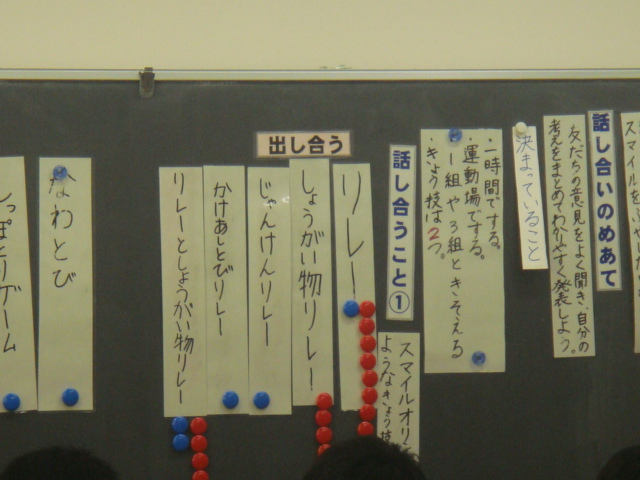 スマイルを
話し合いのめあて
友だちの意見をよく聞き、自分の
考えをまとめ、わかりやすく発表しよう。
決まっていること
・一時間でする。
・運動場でする。
・1組や3組ときそえる
・きょう技は2つ。
話し合うこと①
スマイルオリン
ようなきょう技
出し合う
リレー!
しょうがい物リレー!
じゃんけんリレー
かけあしとびリレー
リレーとしょうがい物リレー
なわとび
しっぽとりゲーム